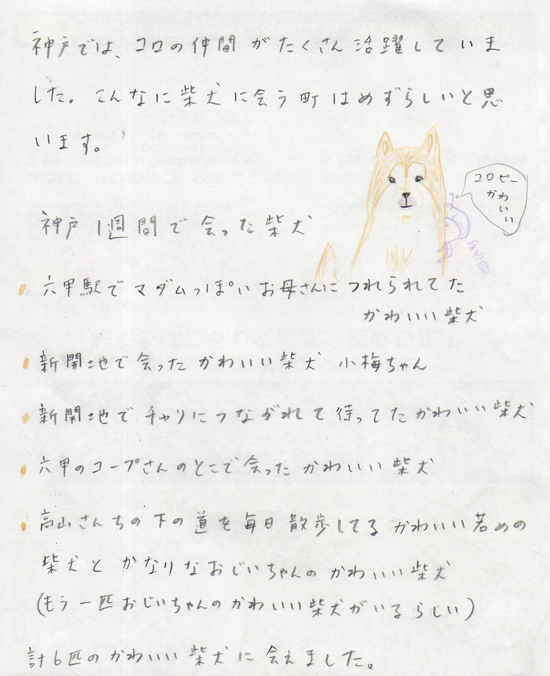 神戸では、コロの仲間がたくさん活躍していま
した。こんなに柴犬に会う町はめずらしいと思
います。
コロピー
かわいい
神戸1週間で会った柴犬
六甲駅でマダムっぽいお母さんにつれられてた
かわいい柴犬
新開地で会ったかわいい柴犬 小梅ちゃん
新開地でチャリにつながれて待ってたかわいい柴犬
六甲のコープさんのとこで会ったかわいい柴犬
高山さんちの下の道を毎日散歩してるかわいい若めの
柴犬とかなりなおじいちゃんのかわいい柴犬
(もう一匹おじいちゃんのかわいい柴犬がいるらしい)
計6匹のかわいい柴犬に会えました。